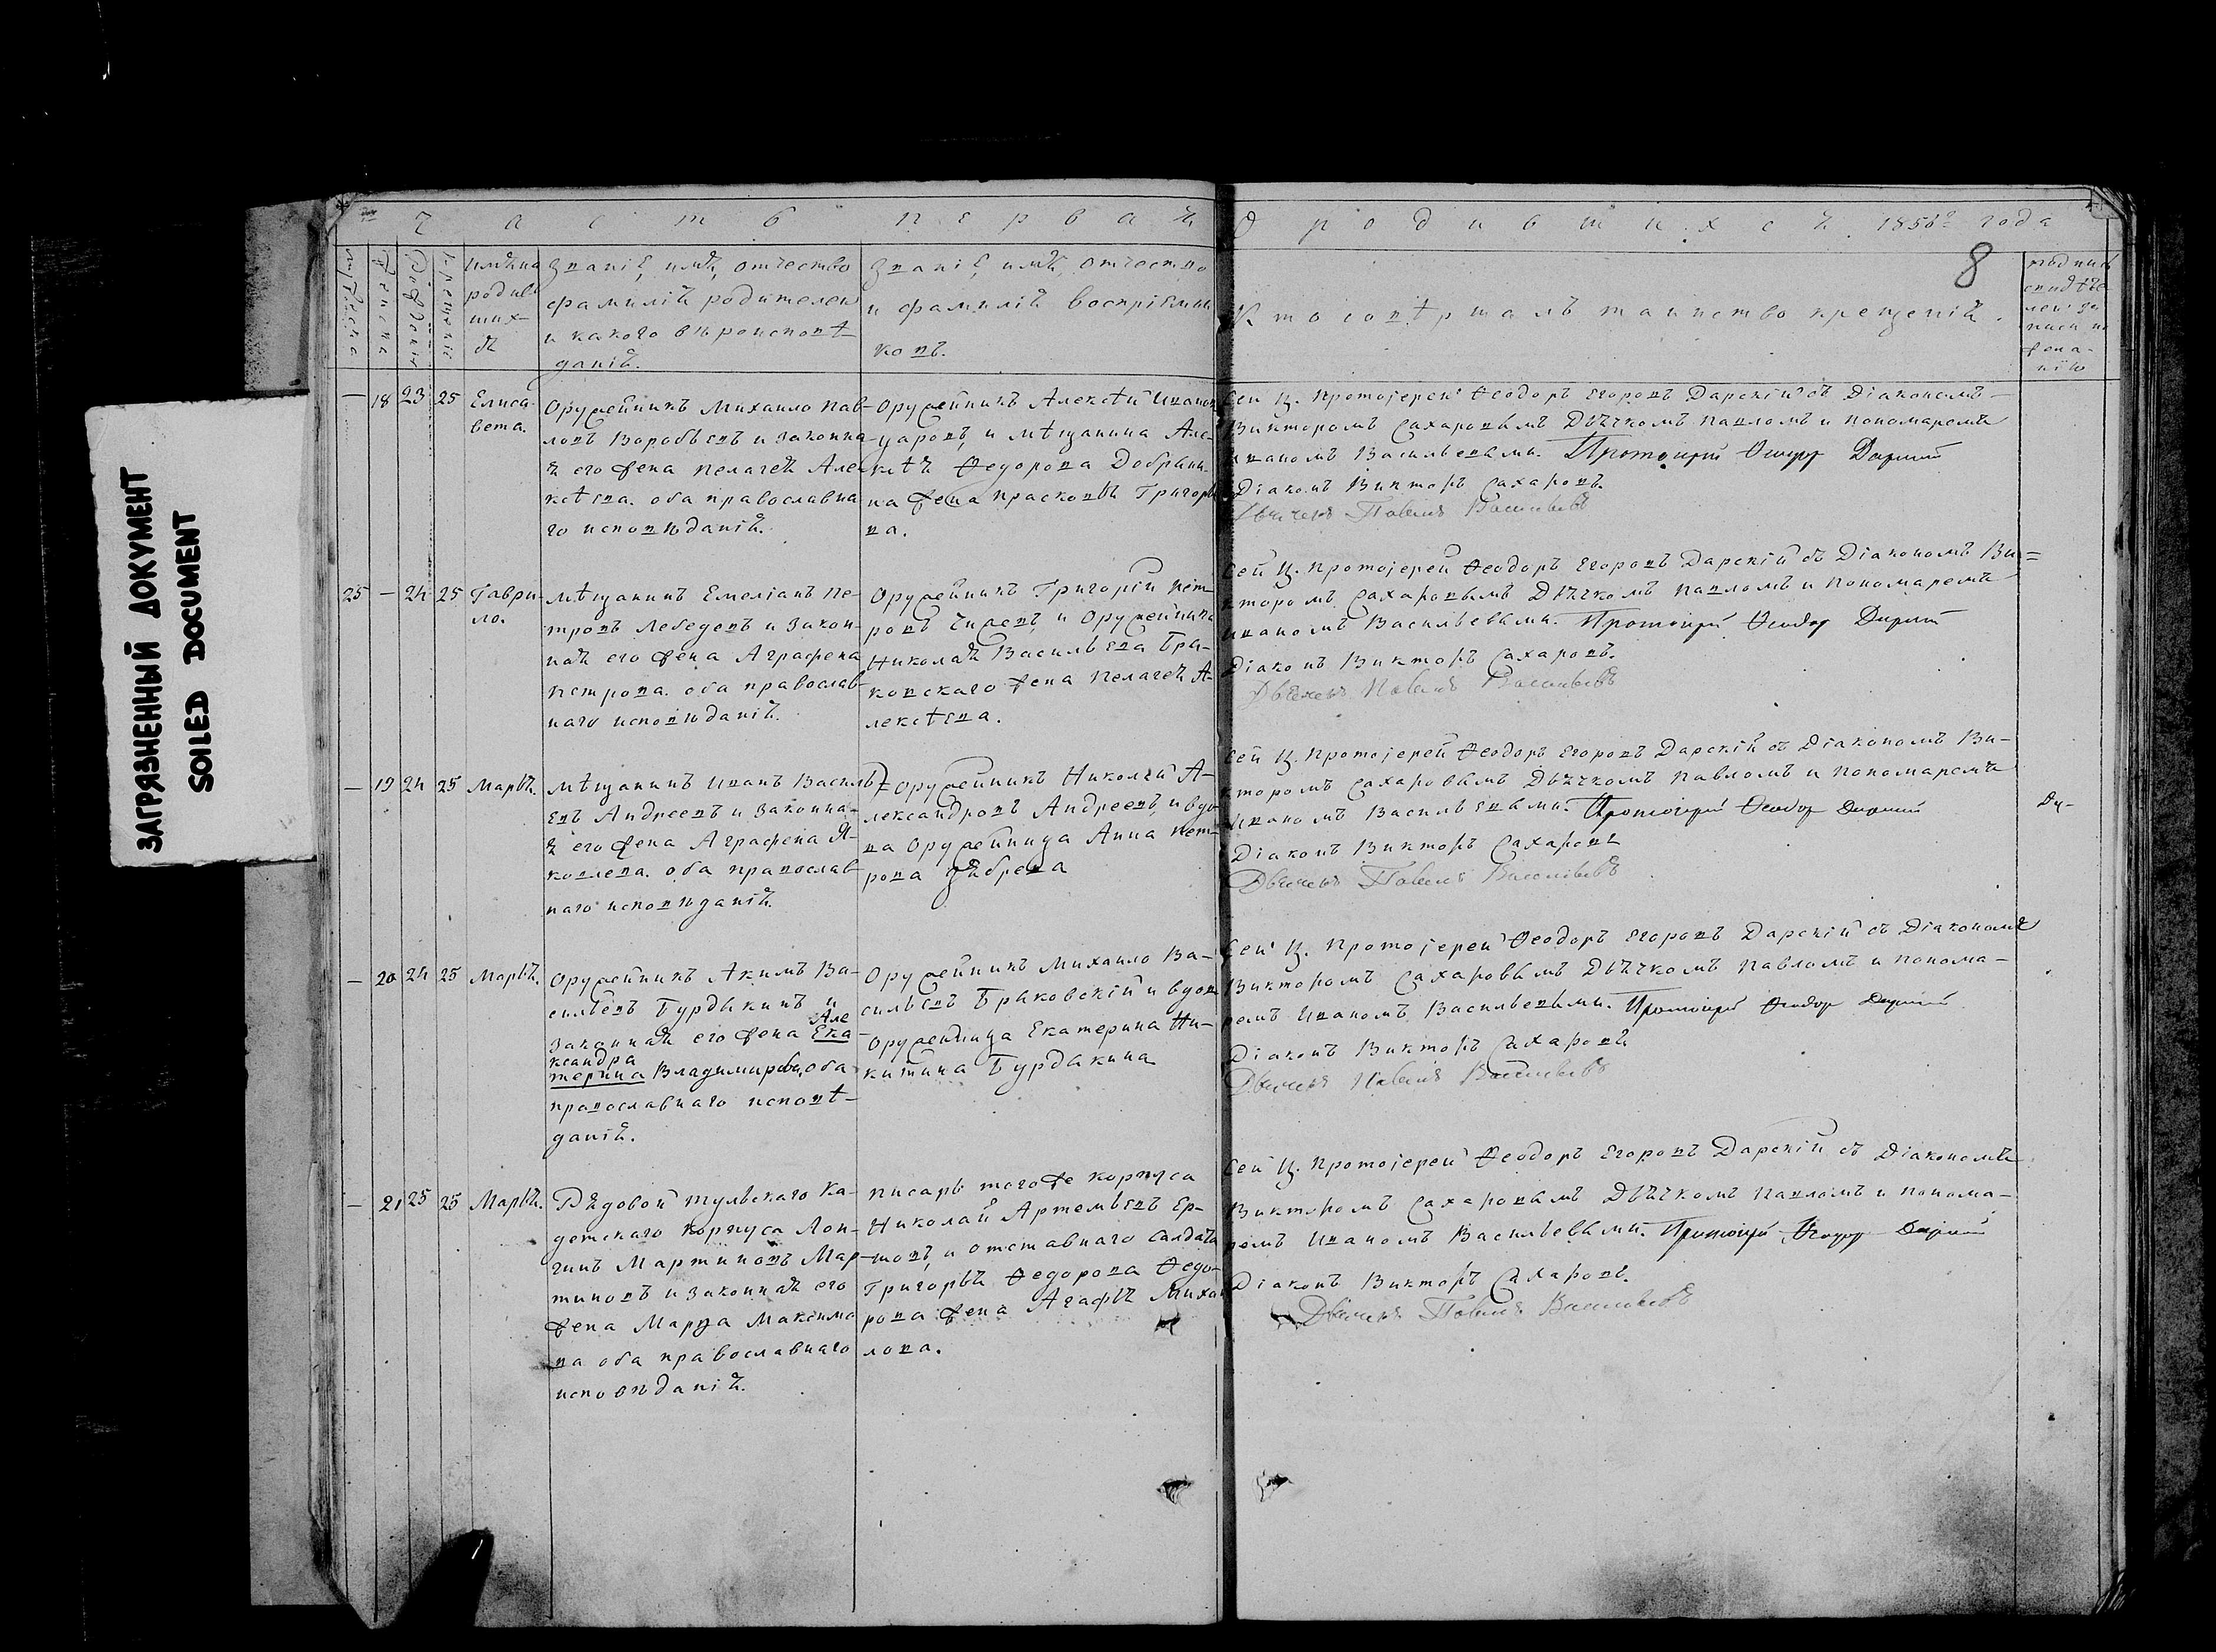 ЗАГРЯЗНЕННЫЙ ДОКУМЕНТ
SOILED DOCUMENT
Часть первая
о родившихся 1856го года
8
Имяна
родив
ших-
ся
Званіе, имя, отчество
фамилія родителей
и какого вѣроисповѣ-
данія.
Званіе, имя, отчество
и фамилія воспріемни
ковъ.
Кто совершалъ таинство крещенія.
— 18 23 25
Елиса-
вета.
Оружейникъ Михайло Пав-
ловъ Воробьевъ и законна-
я его жена Пелагея Але-
ксѣева. оба православна
го исповѣданія.
Оружейникъ Алексѣй Иванов
и мѣщанина Але-
ксѣя Ѳедорова Добрыни-
на жена Прасковья Григорье
ва.
Сей Ц. Протоіерей Ѳеодоръ Егоровъ Дарскій съ Діакономъ
Викторомъ Сахаровымъ Дьячкомъ Павломъ и Пономаремъ
Иваномъ Васильевыми. Протоіерей Ѳеодоръ Дарскій
Діаконъ Викторъ Сахаровъ.
Дьячекъ Павелъ Васильевъ
25 — 24 25
Гаври-
ло.
Мѣщанинъ Емеліанъ Пе-
тровъ Лебедевъ и закон-
ная его жена Аграфена
Петрова. оба православ-
наго исповѣданія.
Оружейникъ Григорій Пет-
ровъ и Оружейника
Николая Васильева Бра-
ковскаго жена Пелагея А-
лексѣева.
Сей Ц. Протоіерей Ѳеодоръ Егоровъ Дарскій съ Діакономъ Ви=
кторомъ Сахаровымъ Дьячкомъ Павломъ и Пономаремъ
Иваномъ Васильевыми. Протоіерей Ѳеодоръ Дарскій
Діаконъ Викторъ Сахаровъ.
Дьячекъ Павелъ Васильевъ
— 19 24 25
Марья.
Мѣщанинъ Иванъ Василь-
евъ Андреевъ и законна-
я его жена Аграфена Я-
ковлева. оба православ-
наго исповѣданія.
Оружейникъ Николай А-
лександровъ Андреевъ, и вдо-
ва Оружейница Анна Пет-
рова Зябрева
Сей Ц. Протоіерей Ѳеодоръ Егоровъ Дарскій съ Діакономъ Ви-
кторомъ Сахаровымъ Дьячкомъ Павломъ и Пономаремъ
Иваномъ Васильевыми. Протоіерей Ѳеодоръ Дарскій
Діаконъ Викторъ Сахаровъ
Дьячекъ Павелъ Васильевъ
— 20 24 25
Марья.
Оружейникъ Акимъ Ва-
сильевъ Бурдыкинъ и
Але
законная его жена Ека
ксандра
терина Владимирова, оба
православнаго исповѣ-
данія.
Оружейникъ Михайло Ва-
сильевъ Браковскій и вдов
Оружейница Екатерина Ни-
китина Бурдакина
Сей Ц. Протоіерей Ѳеодоръ Егоровъ Дарскій съ Діакономъ
Викторомъ Сахаровымъ Дьячкомъ Павломъ и Понома-
ремъ Иваномъ Васильевыми. Протоіерей Ѳеодоръ Дарскій
Діаконъ Викторъ Сахаровъ
Дьячекъ Павелъ Васильевъ
— 21 25 25
Марья.
Рядовой Тульскаго Ка-
детскаго Корпуса Лон-
гинъ Мартиновъ Мар-
тиновъ и законная его
жена Марѳа Максимо
ва оба православнаго
исповѣданія.
Писарь того же корпуса
Николай Артемьевъ Ер-
моѵъ, и отставнаго Салдата
Григорья Ѳедорова Ѳедо-
рова жена Агафья Михай
лова.
Сей Ц. Протоіерей Ѳеодоръ Егоровъ Дарскій съ Діакономъ
Викторомъ Сахаровымъ Дьячкомъ Павломъ и Понома-
ремъ Иваномъ Васильевыми. Протоіерей Ѳеодоръ Дарскій
Діаконъ Викторъ Сахаровъ.
Дьячекъ Павелъ Васильевъ